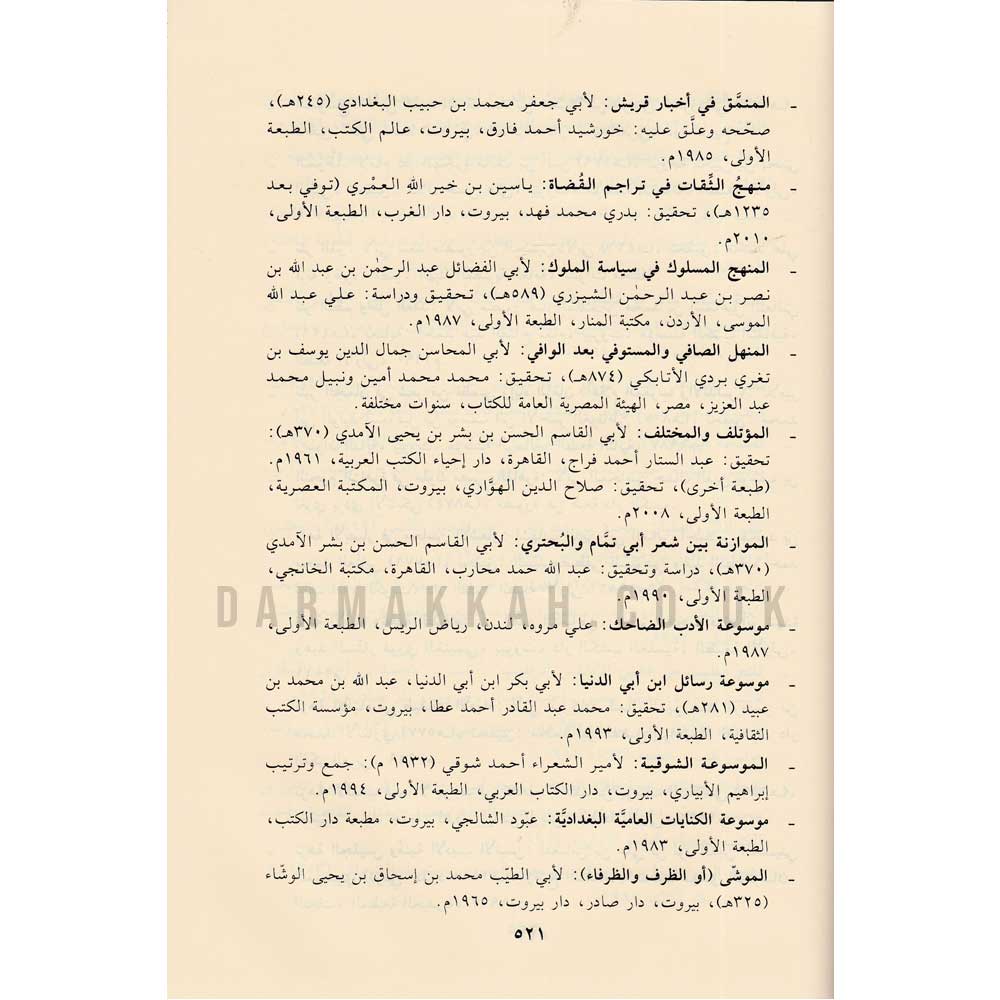 - المنمَّق في أخبار قريش: لأبي جعفر محمد بن حبيب البغدادي (٢٤٥هـ)،
صحّحه وعلَّق عليه: خورشيد أحمد فارق، بيروت، عالم الكتب، الطبعة
الأولى، ١٩٨٥م.
- منهجُ الثِّقات في تراجم القُضاة: ياسين بن خير اللهِ العمْري (توفي بعد
١٢٣٥هـ)، تحقيق: بدري محمد فهد، بيروت، دار الغرب، الطبعة الأولى،
٢٠١٠م.
- المنهج المسلوك في سياسة الملوك: لأبي الفضائل عبد الرحمٰن بن عبد الله بن
نصر بن عبد الرحمٰن الشيزري (٥٨٩هـ)، تحقيق ودراسة: علي عبد الله
الموسى، الأردن، مكتبة المنار، الطبعة الأولى، ١٩٨٧م.
- المنهل الصافي والمستوفي بعد الوافي: لأبي المحاسن جمال الدين يوسف بن
تغري بردي الأتابكي (٨٧٤هـ)، تحقيق: محمد محمد أمين ونبيل محمد
عبد العزيز، مصر، الهيئة المصرية العامة للكتاب، سنوات مختلفة.
- المؤتلف والمختلف: لأبي القاسم الحسن بن بشر بن يحيى الآمدي (٣٧٠هـ):
تحقيق: عبد الستار أحمد فراج، القاهرة، دار إحياء الكتب العربية، ١٩٦١م.
(طبعة أخرى)، تحقيق: صلاح الدين الهوَّاري، بيروت، المكتبة العصرية،
الطبعة الأولى، ٢٠٠٨م.
- الموازنة بين شعر أبي تمَّام والبُحتري: لأبي القاسم الحسن بن بشر الآمدي
(٣٧٠هـ)، دراسة وتحقيق: عبد الله حمد محارب، القاهرة، مكتبة الخانجي،
الطبعة الأولى، ١٩٩٠م.
DARMAKKAH.CO.UK
- موسوعة الأدب الضاحك: علي مروه، لندن، رياض الريس، الطبعة الأولى،
١٩٨٧م.
- موسوعة رسائل ابن أبي الدنيا: لأبي بكر ابن أبي الدنيا، عبد الله بن محمد بن
عبيد (٢٨١هـ)، تحقيق: محمد عبد القادر أحمد عطا، بيروت، مؤسسة الكتب
الثقافية، الطبعة الأولى، ١٩٩٣م.
- الموسوعة الشوقية: لأمير الشعراء أحمد شوقي (١٩٣٢ م): جمع وترتيب
إبراهيم الأبياري، بيروت، دار الكتاب العربي، الطبعة الأولى، ١٩٩٤م.
- موسوعة الكنايات العاميَّة البغداديَّة: عبّود الشالجي، بيروت، مطبعة دار الكتب،
الطبعة الأولى، ١٩٨٣م.
- الموشّى (أو الظرف والظرفاء): لأبي الطيّب محمد بن إسحاق بن يحيى الوشّاء
(٣٢٥هـ)، بيروت، دار صادر، دار بيروت، ١٩٦٥م.
٥٢١